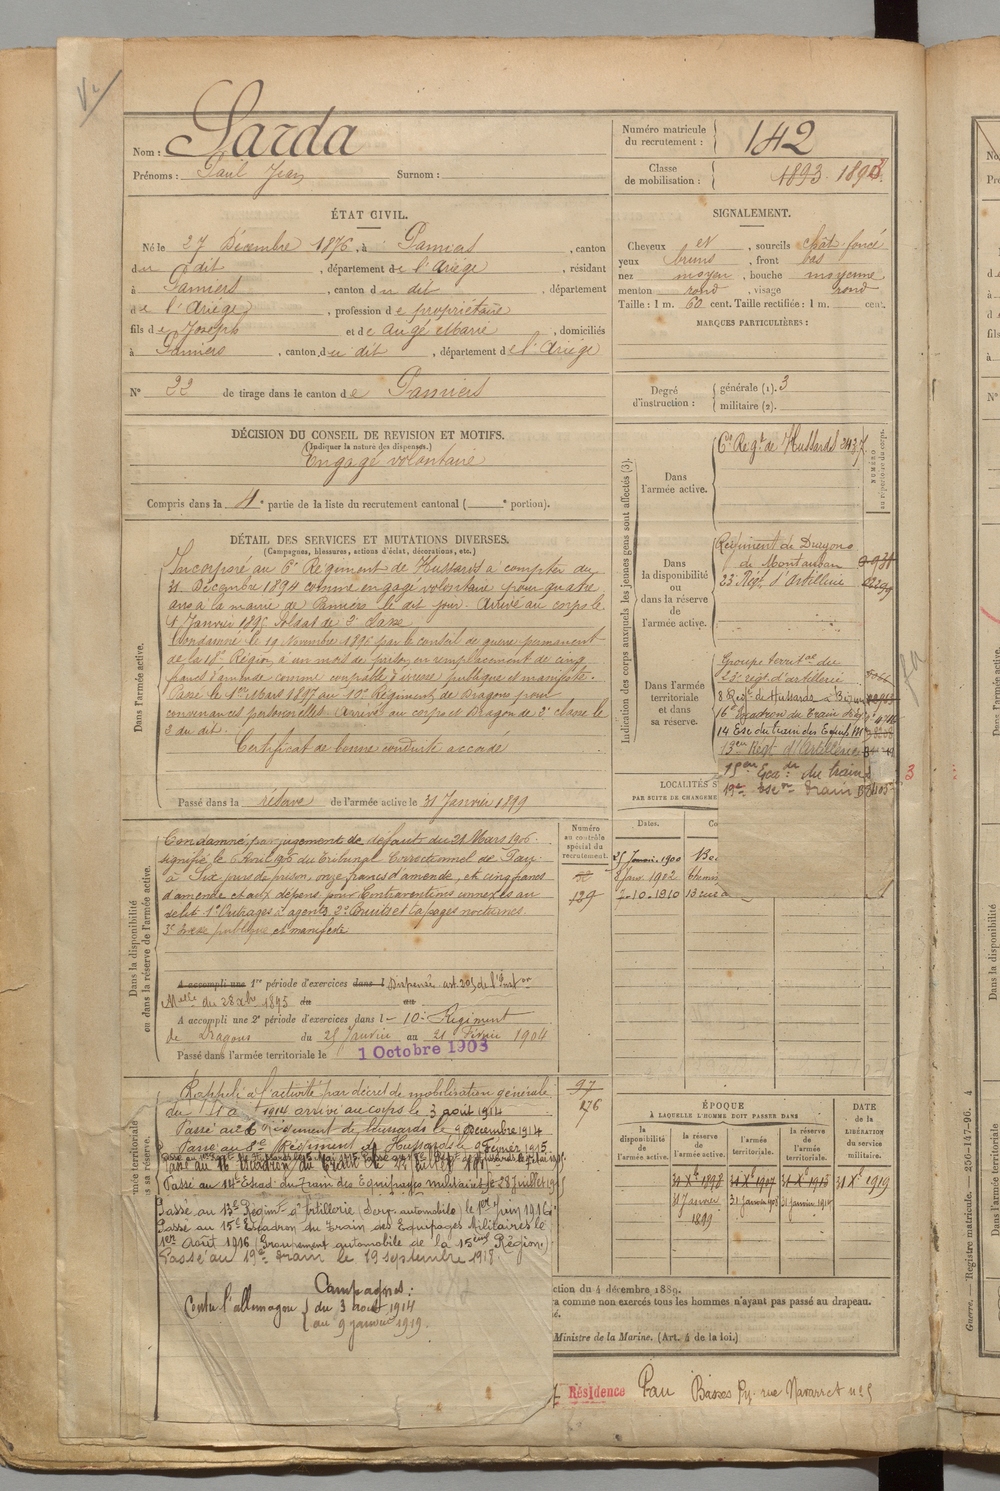 Nom : Sarda
Prénoms : Paul Jean Surnom :
Numéro matricule du recrutement : 142
Classe de mobilisation : 1893
ÉTAT CIVIL.
Né le 27 Décembre 1876, à Pamiers, canton
du dit, département de l'Ariège, résidant
à Pamiers, canton du dit, département
de l'Ariège, profession de propriétaire
fils de Joseph et de Augé Marie, domiciliés
à Pamiers, canton du dit, département de l'Ariège
N° 22 de tirage dans le canton de Pamiers
SIGNALEMENT.
Cheveux et, sourcils chât. foncé
yeux bruns, front bas
nez moyen, bouche moyenne
menton rond, visage rond
Taille : 1 m. 60 cent. Taille rectifiée : 1 m. cent.
MARQUES PARTICULIÈRES :
Degré d'instruction : générale (1). 3
militaire (2).
DÉCISION DU CONSEIL DE REVISION ET MOTIFS.
(Indiquer la nature des dispenses.)
Engagé volontaire
Compris dans la 4e partie de la liste du recrutement cantonal ( e portion).
DÉTAIL DES SERVICES ET MUTATIONS DIVERSES.
(Campagnes, blessures, actions d'éclat, décorations, etc.)
Dans l'armée active.
Incorporé au 6e Régiment de Hussards à compter du
31 Décembre 1894 comme engagé volontaire pour quatre
ans à la mairie de Pamiers le dit jour. Arrivé au corps le
1 Janvier 1895 Soldat de 2e Classe
Condamné le 19 Novembre 1895 par le conseil de guerre permanent
de la 18e Région à un mois de prison en remplacement de cinq
francs d'amende comme coupable d'ivresse publique et manifeste.
Passé le 1er Mars 1897 au 10e Régiment de Dragons pour
convenances personnelles. Arrivé au corps et Dragon de 2e classe le
2 du dit.
Certificat de bonne conduite accordé
Passé dans la réserve de l'armée active le 31 Janvier 1899
Indication des corps auxquels les jeunes gens sont affectés (3).
NUMÉRO au répertoire du corps.
Dans l'armée active.
6e Regt de Hussards 2437
Dans la disponibilité ou dans la réserve de l'armée active.
Régiment de Dragons
de Montauban
23e Régt d'Artillerie
Dans l'armée territoriale et dans sa réserve.
Groupe territal du
23e régt d'artillerie
8 Regt de Hussards
16e Escadron du Train
14 Esc du train des Equip. Mres
13eme Regt d'Artillerie
15eme Escadon du train
19e Escon Train
3
LOCALITÉS S
PAR SUITE DE CHANGEME
Dates. Co
25 Janvier 1900
8 Janv 1902 Chemin
7-10-1910 13 rue
Dans la disponibilité ou dans la réserve de l'armée active.
Numéro au contrôle spécial du recrutement.
129
Condamné par jugement de défaut du 21 Mars 1906
signifié le 6 Avril 906 du Tribunal Correctionnel de Pau
à Six jours de prison, onze francs d'amende, et cinq francs
d'amende et aux dépens pour Contraventions connexes au
délit 1° Outrages à agents 2° Bruits et tapages nocturnes
3° Ivresse publique et manifeste
A accompli une 1re période d'exercices dans l Dispensé art. 201 de l'Inston
Melle du 28 Xbre 1895 du au
A accompli une 2e période d'exercices dans l- 10e Régiment
de Dragons du 25 Janvier au 21 Février 1904
Passé dans l'armée territoriale le 1 Octobre 1903
Rappelé à l'activité par décret de mobilisation générale
du 1er août 1914 arrivé au corps le 3 août 1914
Passé au Régiment de Hussards le 9 Décembre 1914
Passé au 8e Régiment de Hussards le 9 Février 1915
Passé au 16 Escadron du Train le
Passé au 14e Escad du Train des Equipages militaires le 28 Juillet 19
Passé au 13e Régimt d'Artillerie (Serv. automobile) le 1er Juin 1916
Passé au 15e Escadron du Train des Equipages Militaires le
1er Août 1916 (Groupement automobile de la 15eme Région)
Passé au 19e Train le 19 septembre 1918
97
176
Campagnes :
Contre l'allemagne { du 3 août 1914
au 9 janvier 1919.
ÉPOQUE
À LAQUELLE L'HOMME DOIT PASSER DANS
DATE de la LIBÉRATION du service militaire.
la disponibilité de l'armée active.
la réserve de l'armée active.
l'armée territoriale.
la réserve de l'armée territoriale.
31 Xe 1898 31 Xe 1907 31 Xe 1913 31 Xe 1919
31 Janvier 1899 31 janvier 1908 31 janvier 1914
ction du 4 décembre 1889.
a comme non exercés tous les hommes n'ayant pas passé au drapeau.
Ministre de la Marine. (Art. 4 de la loi.)
Résidence Pau Basses Py. rue Navarret n° 5
Guerre. — Registre matricule. — 256-147-96. 4